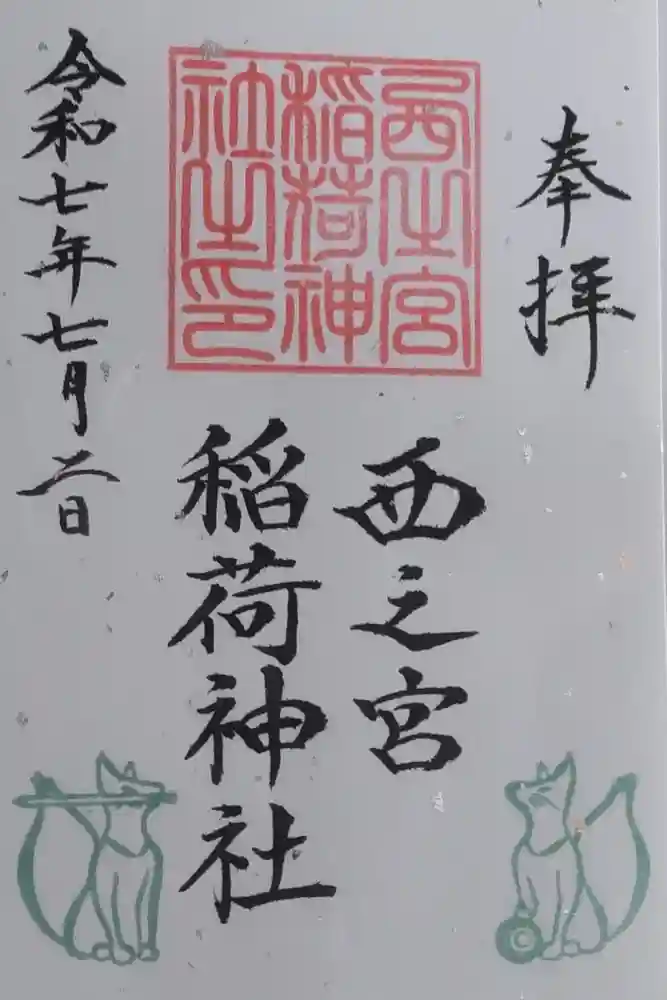 奉拝
西之宮
稲荷神
社之印
西之宮
稲荷神社
令和七年七月二日